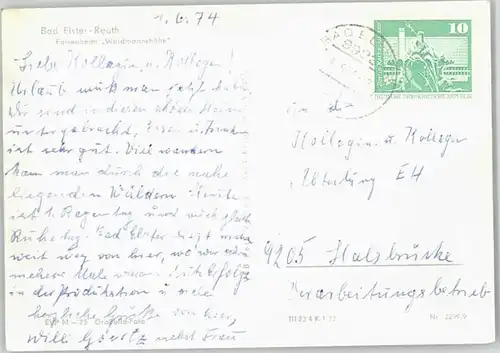 1.6.74
Bad Elster-Reuth
Ferienheim „Waldmannshöhe"
Liebe Kollegin u. Kollegen!
Urlaub müßt man jetzt haben.
Wir sind in diesen schönen Heim
untergebracht, Essen u. Trinken
ist sehr gut. Viel wandern
kann man durch die nahe
liegenden Wäldern. Heute
ist 1. Regentag und wird gleich
Ruhetag. Bad Elster liegt nicht
weit weg von hier, wo wir schon
mehrere Male waren. Gute Erfolge
in der Produktion u. viele
herzliche Grüße von hier,
Willi nebst Frau
10
DEUTSCHE DEMOKRATISCHE REPUBLIK
An die
Kollegin u. Kollegen
Abteilung EH
9205 Halsbrücke
Verarbeitungsbetrieb
EVP M -,25 Original-Foto